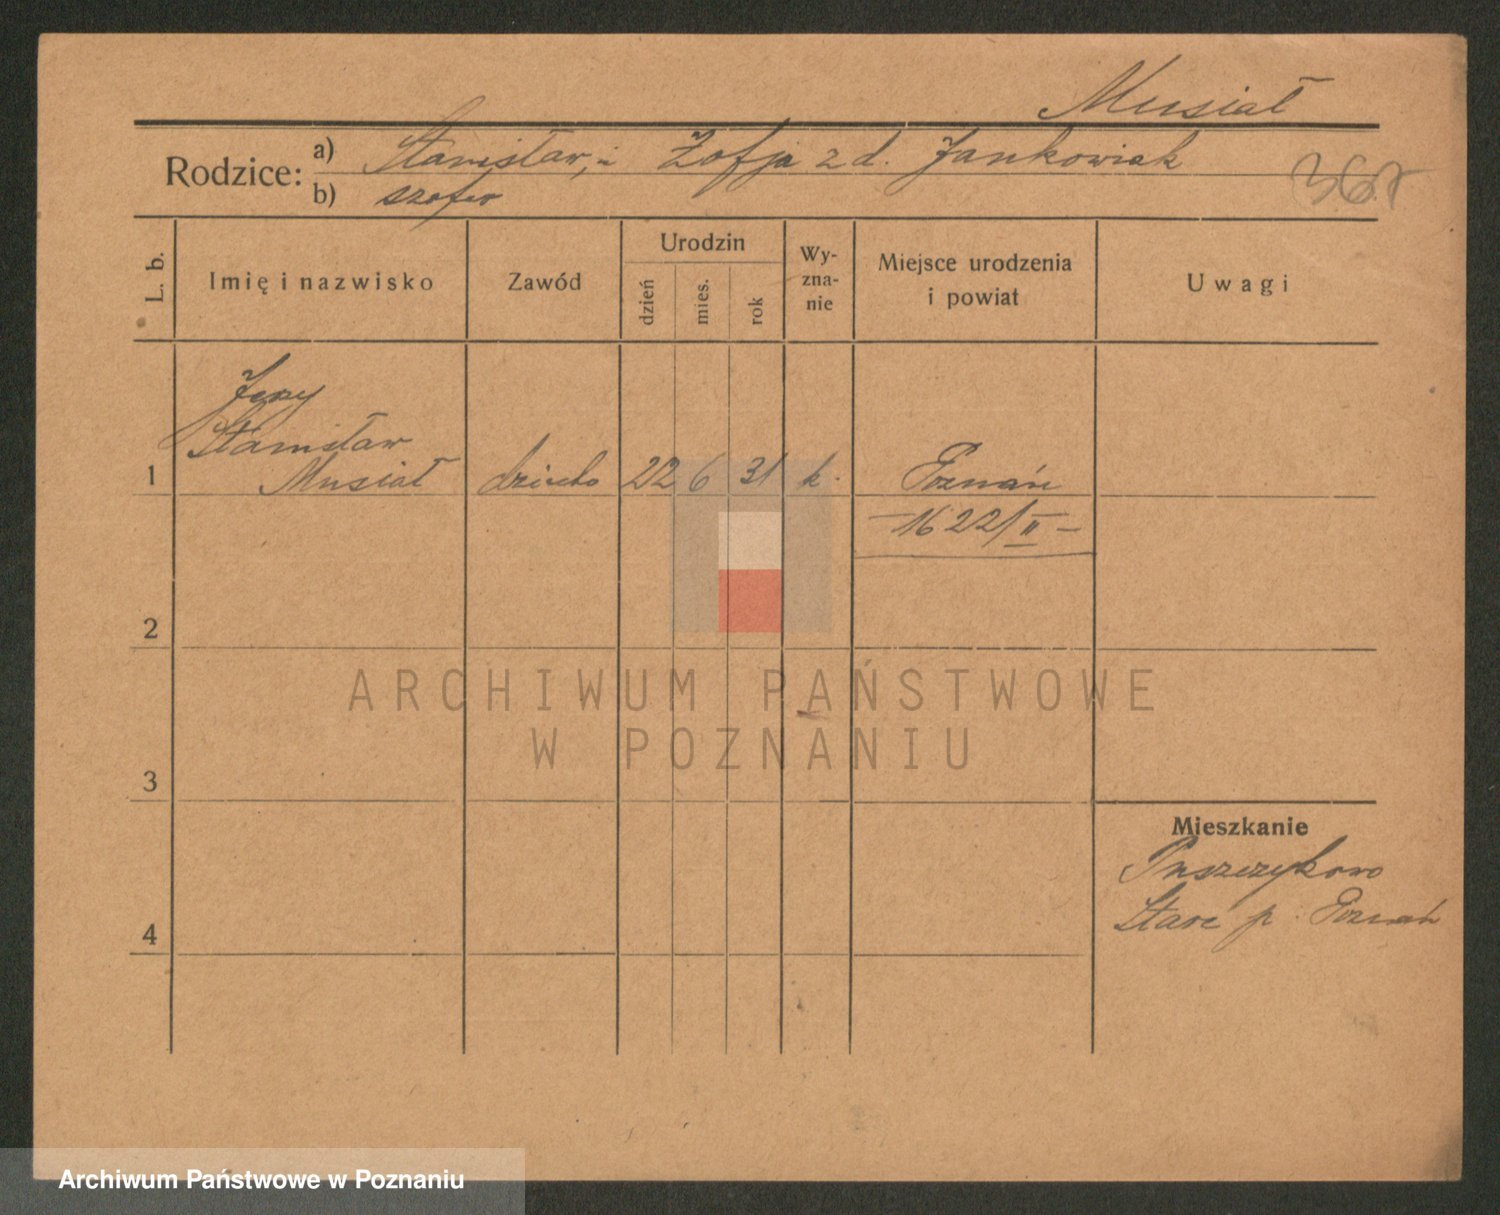 Musiał
Rodzice: a) Stanisław, i Zofja z d. Jankowiak
b) szofer
367
L. b.
Imię i nazwisko
Zawód
Urodzin
dzień
mies.
rok
Wy-
zna-
nie
Miejsce urodzenia
i powiat
Uwagi
Jerzy
Stanisław
1 Musiał dziecko 22 6 31 k. Poznań
- 1622/II -
2
ARCHIWUM PAŃSTWOWE
W POZNANIU
3
Mieszkanie
Puszczykowo
Stare p. Poznań
4
Archiwum Państwowe w Poznaniu